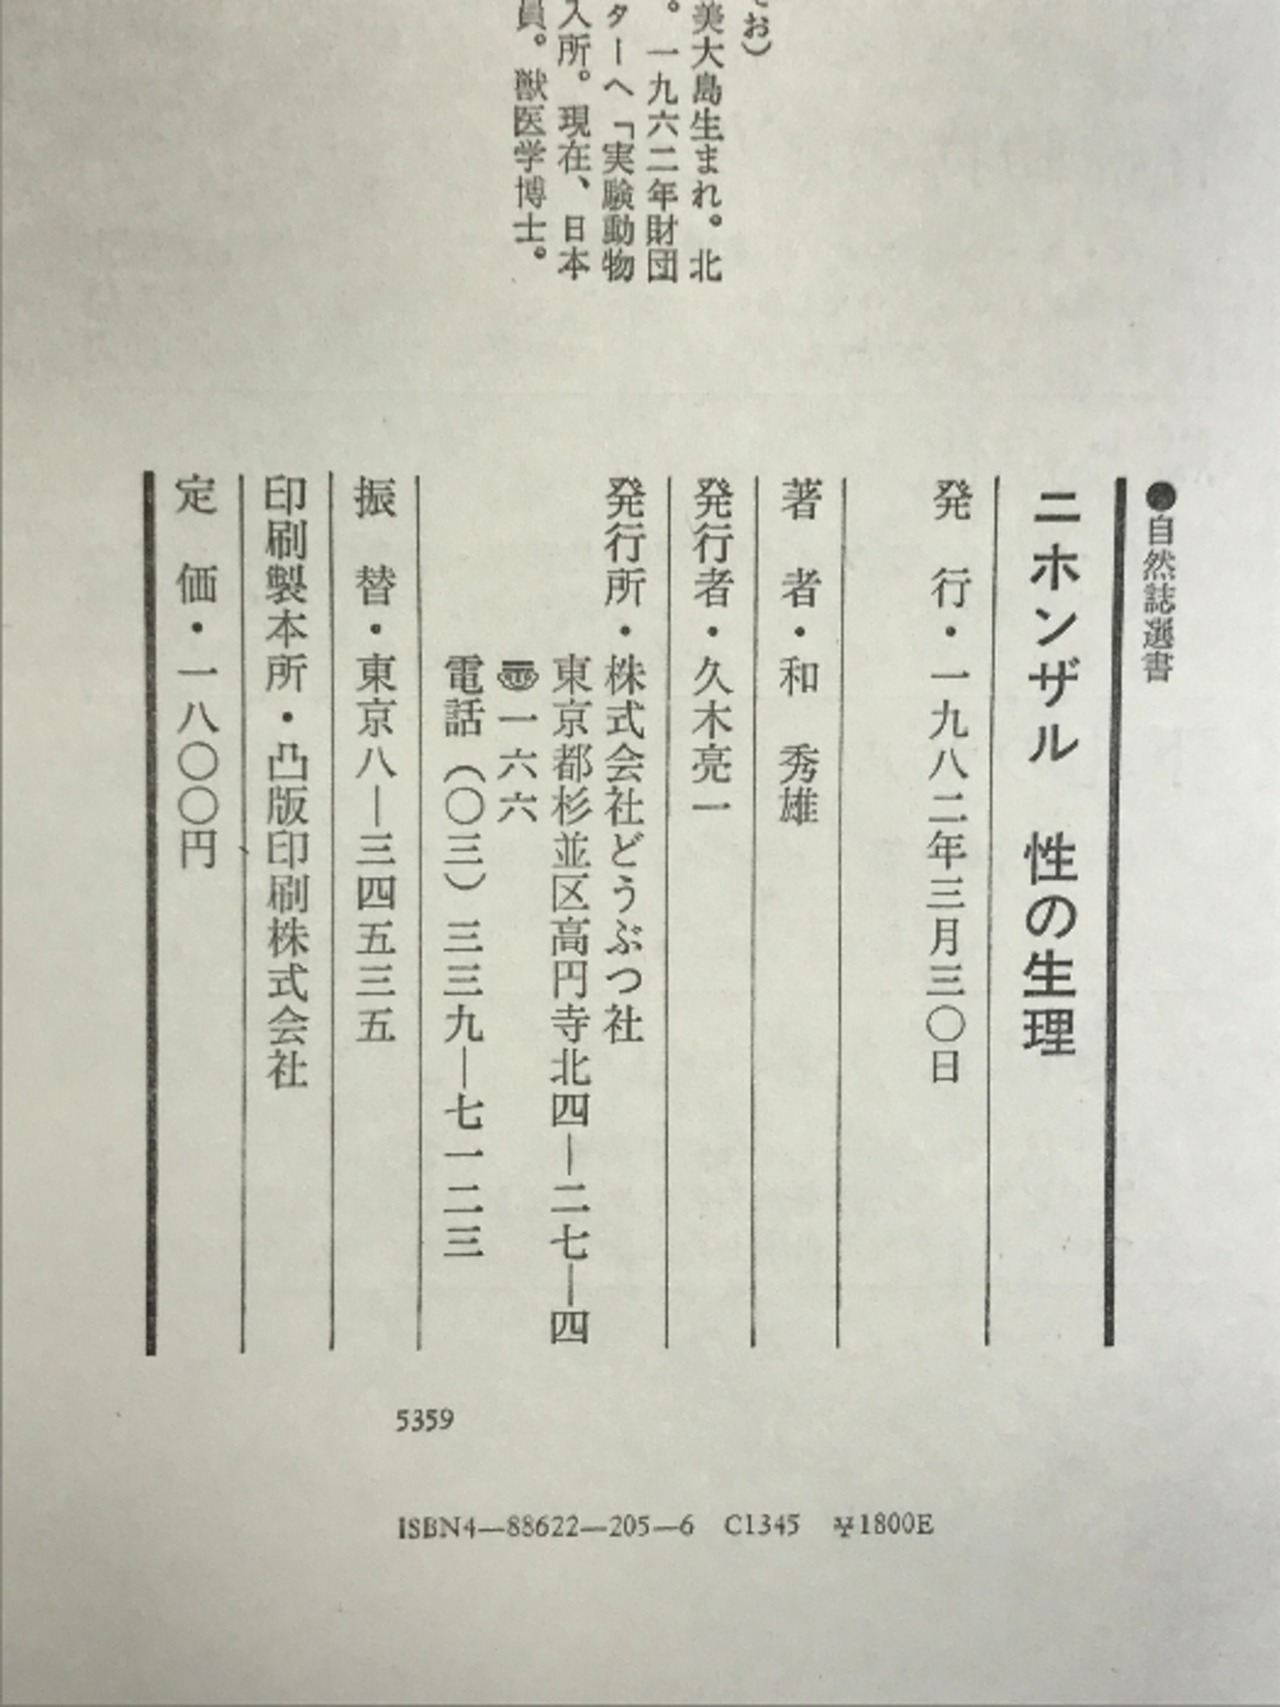 お）
美大島生まれ。北
。一九六二年財団
ターへ「実験動物
入所。現在、日本
員。獣医学博士。
●自然誌選書
ニホンザル 性の生理
発 行・一九八二年三月三〇日
著 者・和 秀雄
発行者・久木亮一
発行所・株式会社どうぶつ社
東京都杉並区高円寺北四―二七―四
〠一六六
電話（〇三）三三九―七一二三
振 替・東京八―三四五三五
印刷製本所・凸版印刷株式会社
定 価・一八〇〇円
5359
ISBN4―88622―205―6 C1345 ¥1800E